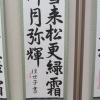 雪来松更緑霜
降月弥輝